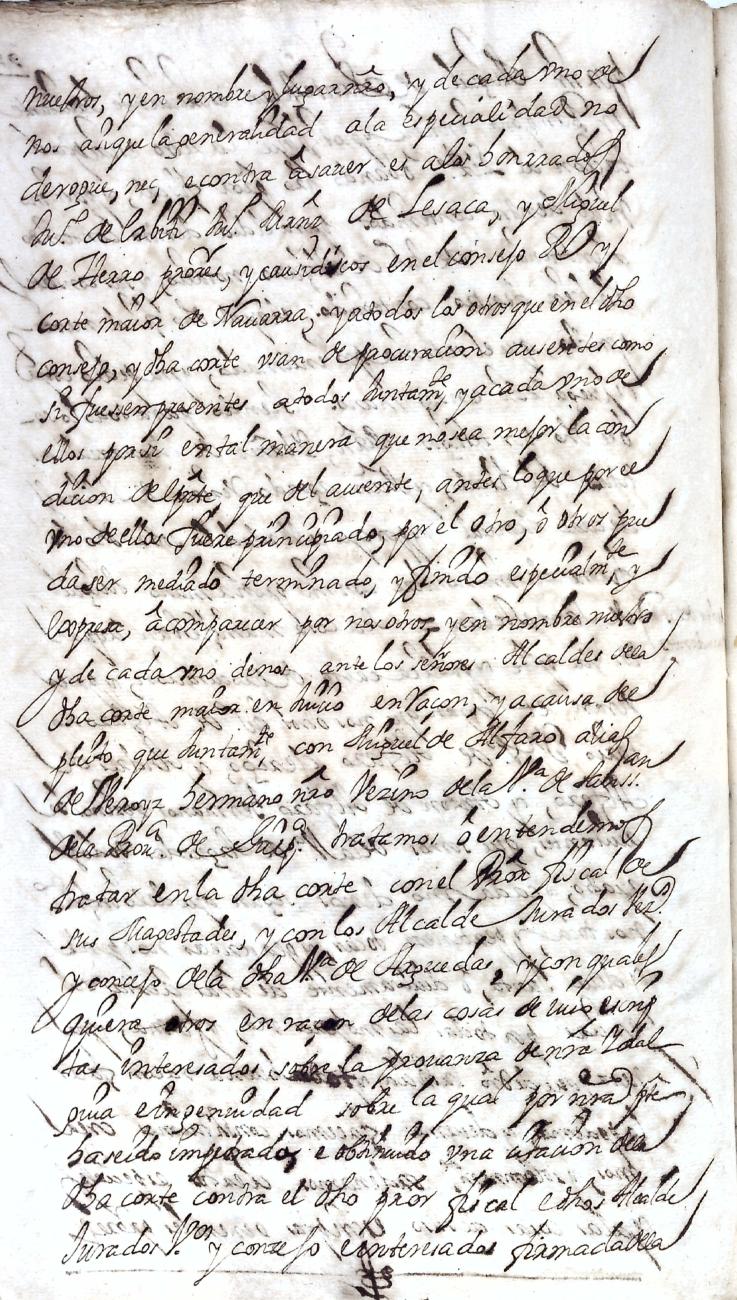 nuestros, y en nombre y lugar nrõ, y de cada vno de
nos assi que la generalidad a la especialidad no
derogue, nec, e contra â saver es a los honrrados
Ju.º de labiti Ju.º de Lesaca, y Miguel
de Hierro prores, y causidicos en el consejo R.l y
corte maior de Nauarra, y a todos los otros que en el dho
consejo, y dha corte vsan de procuracion ausentes como
si fuessen presentes a todos Juntam.te, y a cada vno de
ellos por si en tal manera que no sea mejor la con
dicion del pnte que del ausente, antes lo que por el
vno de ellos fuere principiado, por el otro, ô otros pue
da ser mediado terminado, y finido especialm.te, y
expresa, â comparecer por nosotros, y en nombre nuestro
y de cada vno de nos, ante los señores Alcaldes de la
dha corte maior en Juicio en raçon, y a causa del
pleito que Juntam.te con Miguel de Alfaro alias
de Veroyz hermano nrõ vezino de la V.ª de
de la Prou.ª de Guip.ª tratamos ô entendemos
tratar en la dha corte con el Prõr fiscal de
sus Magestades, y con los Alcalde Jurados Vez.os
y concejo de la dha V.ª de Arguedas, y con quales
quiera otros en raçon de las cosas de iuso escrip
tas interesados sobre la prouanza de nrã Ydal
guia e ingenuidad sobre la qual por nrã pte
ha seido impetrado, e obtenido vna citacion de la
dha corte contra el dho prõr fiscal e dhos Alcalde
Jurados V.os y concejo e interesados firmada de la